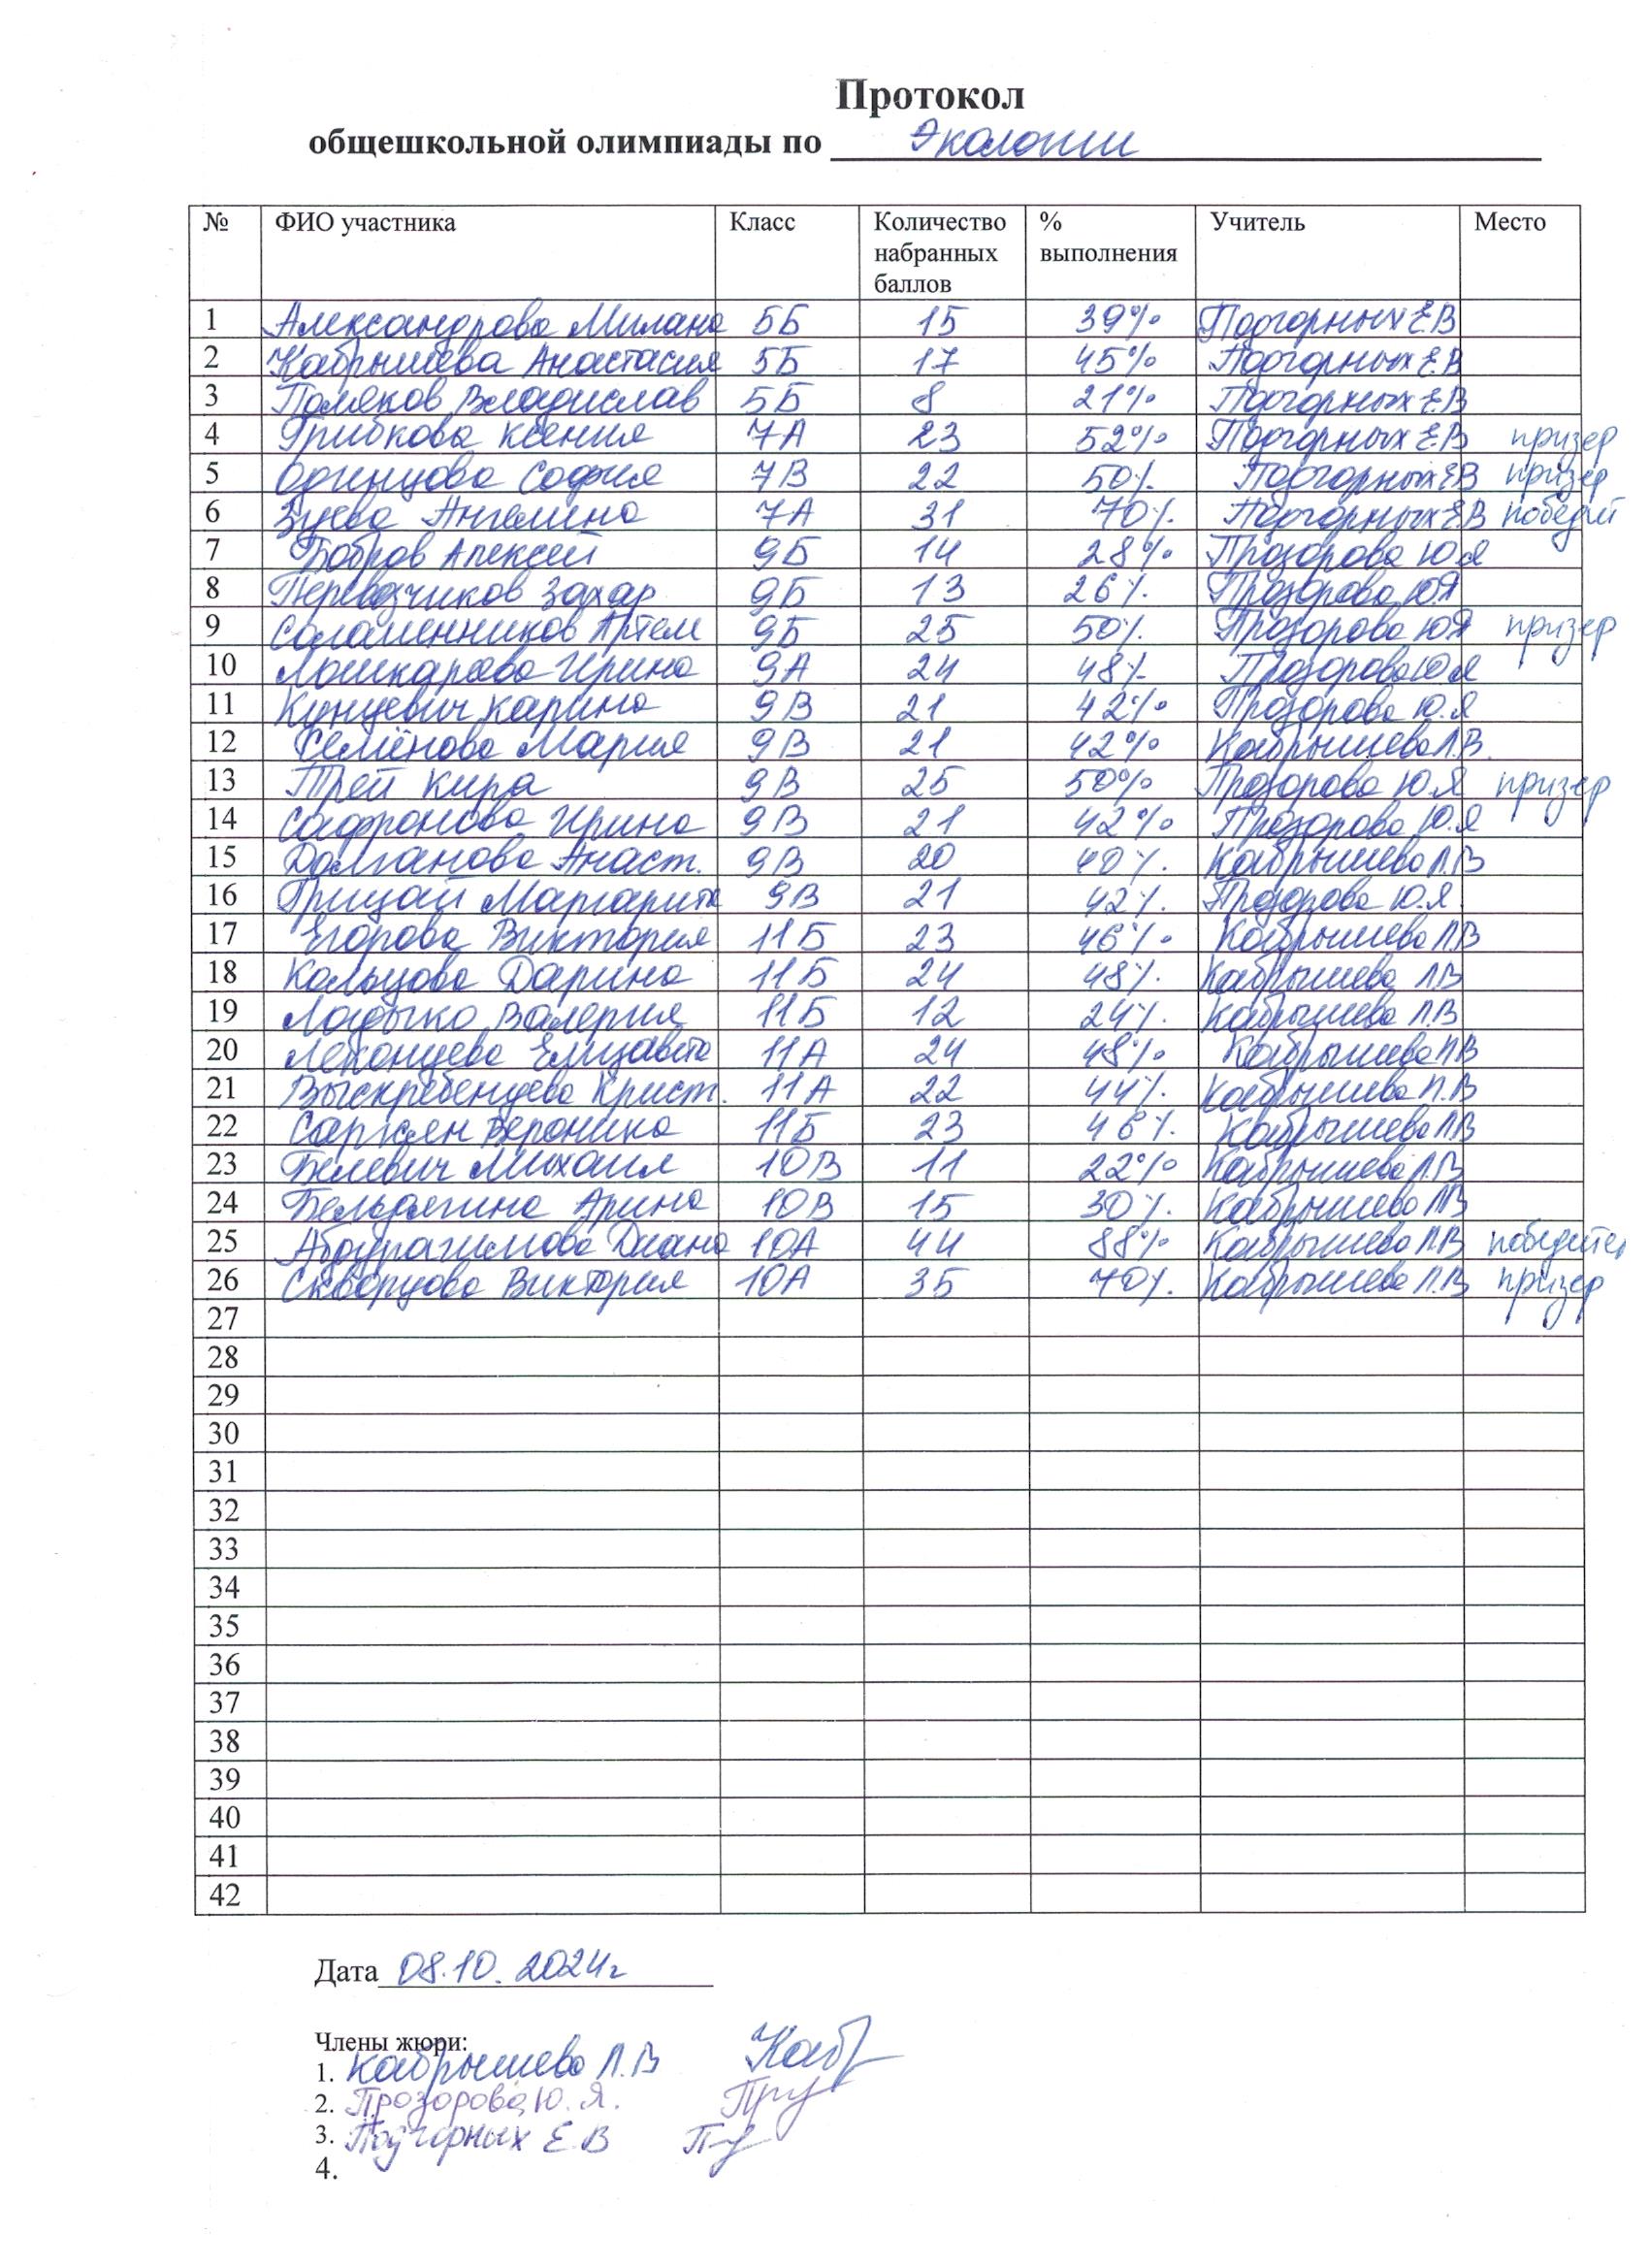 Протокол
общешкольной олимпиады по Экологии
№ ФИО участника Класс Количество набранных баллов % выполнения Учитель Место
1 Александрова Милана 5Б 15 39% Подгорных Е.В
2 Кабрышева Анастасия 5Б 17 45% Подгорных Е.В
3 Поляков Владислав 5Б 8 21% Подгорных Е.В
4 Грибкова Ксения 7А 23 52% Подгорных Е.В призер
5 Одинцова София 7В 22 50% Подгорных Е.В призер
6 Зуева Ангелина 7А 31 70% Подгорных Е.В победит
7 Бобров Алексей 9Б 14 28% Прозорова Ю.Я
8 Перевозчиков Захар 9Б 13 26% Прозорова Ю.Я
9 Соломенников Артем 9Б 25 50% Прозорова Ю.Я призер
10 Лошкарева Ирина 9А 24 48% Прозорова Ю.Я
11 Кунцевич Карина 9В 21 42% Прозорова Ю.Я
12 Семёнова Мария 9В 21 42% Кабрышева Л.В.
13 Трей Кира 9В 25 50% Прозорова Ю.Я призер
14 Сафронова Ирина 9В 21 42% Прозорова Ю.Я
15 Долганова Анаст. 9В 20 40% Кабрышева Л.В
16 Грицай Маргарита 9В 21 42% Прозорова Ю.Я.
17 Егорова Виктория 11Б 23 46% Кабрышева Л.В
18 Кольцова Дарина 11Б 24 48% Кабрышева Л.В
19 Ладыко Валерия 11Б 12 24% Кабрышева Л.В
20 Леконцева Елизавета 11А 24 48% Кабрышева Л.В
21 Выскребенцева Крист. 11А 22 44% Кабрышева Л.В
22 Саркян Вероника 11Б 23 46% Кабрышева Л.В
23 Белевич Михаил 10В 11 22% Кабрышева Л.В
24 Бельдягина Арина 10В 15 30% Кабрышева Л.В
25 Абдурагимова Диана 10А 44 88% Кабрышева Л.В победител
26 Скворцова Виктория 10А 35 70% Кабрышева Л.В призер
27
28
29
30
31
32
33
34
35
36
37
38
39
40
41
42
Дата 08.10.2024г
Члены жюри:
1. Кабрышева Л.В Каб
2. Прозорова Ю.Я.
3. Подгорных Е.В
4.